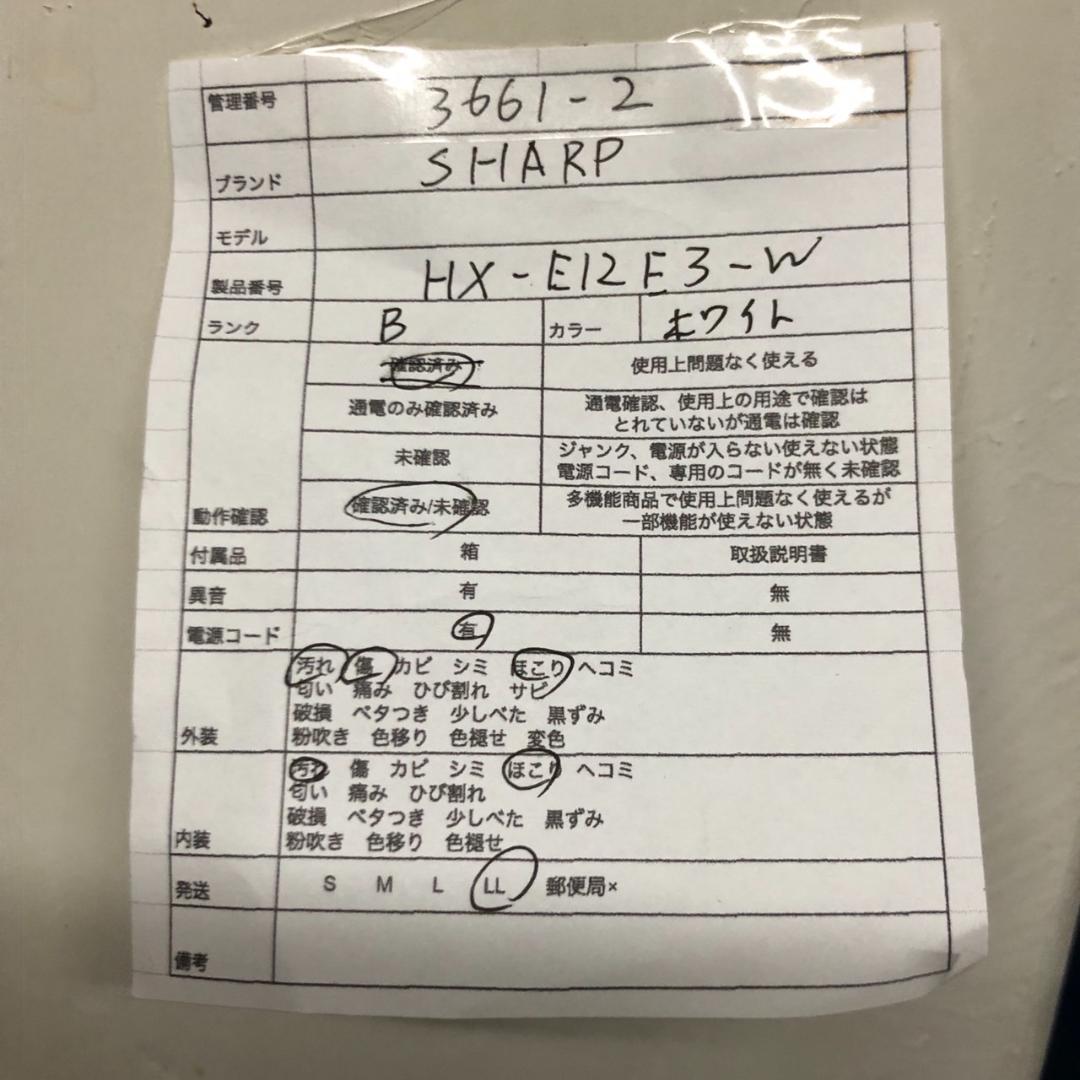 管理番号 3661-2
ブランド SHARP
モデル
製品番号 HX-E12E3-W
ランク B カラー ホワイト
確認済み 使用上問題なく使える
通電のみ確認済み 通電確認、使用上の用途で確認は
とれていないが通電は確認
未確認 ジャンク、電源が入らない使えない状態
電源コード、専用のコードが無く未確認
動作確認 確認済み/未確認 多機能商品で使用上問題なく使えるが
一部機能が使えない状態
付属品 箱 取扱説明書
異音 有 無
電源コード 有 無
汚れ 傷 カビ シミ ほこり ヘコミ
匂い 痛み ひび割れ サビ
破損 ベタつき 少しべた 黒ずみ
外装 粉吹き 色移り 色褪せ 変色
汚れ 傷 カビ シミ ほこり ヘコミ
匂い 痛み ひび割れ
破損 ベタつき 少しべた 黒ずみ
内装 粉吹き 色移り 色褪せ
発送 S M L LL 郵便局×
備考